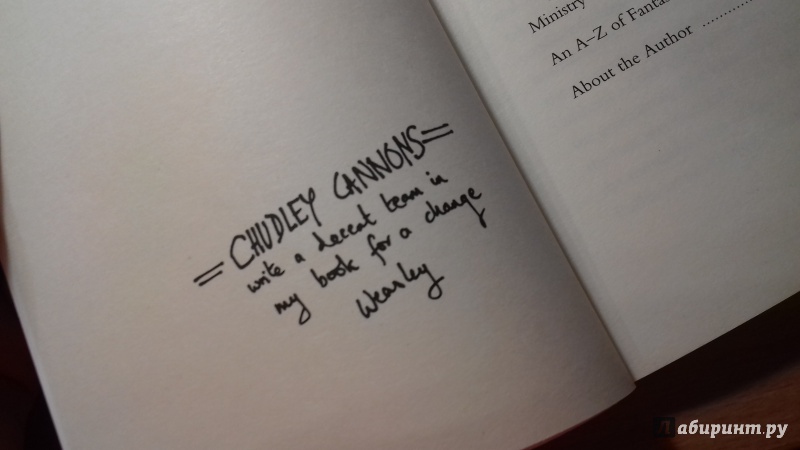 = CHUDLEY CANNONS =
write a decent team in
my book for a change
Weasley
Ministry
An A–Z of Fantas
About the Author ..........
Лабиринт.ру